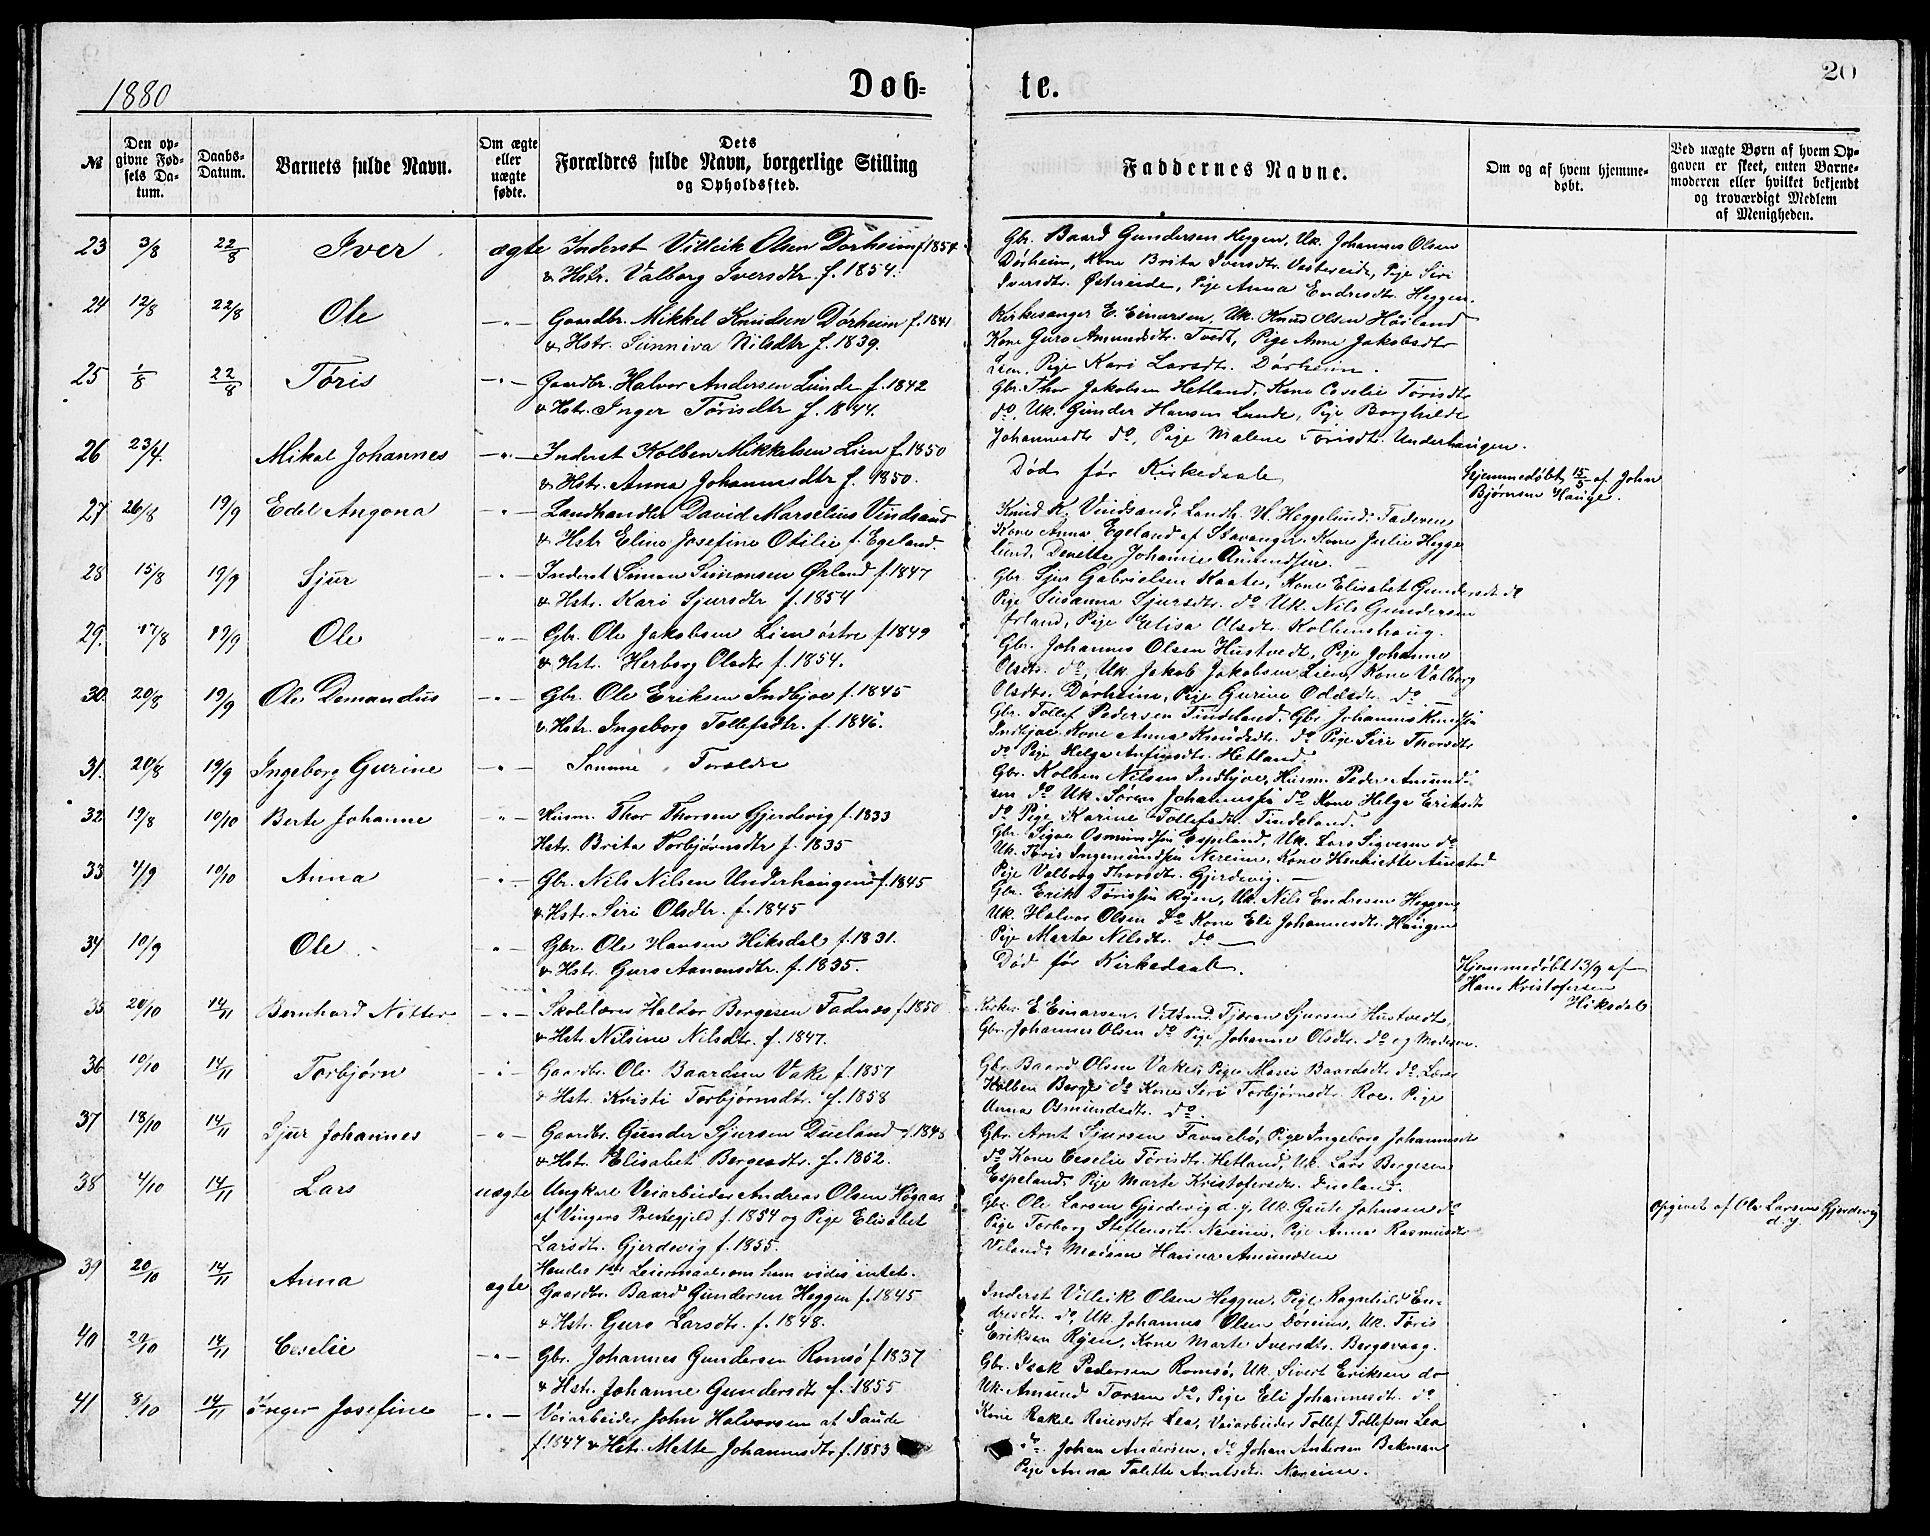 1880
Døb-
te.
20
№
Den op-
givne Fød-
sels Da-
tum.
Daabs-
Datum.
Barnets fulde Navn.
Om ægte
eller
uægte
fødte.
Dets
Forældres fulde Navn, borgerlige Stilling
og Opholdssted.
Faddernes Navne.
Om og af hvem hjemme-
døbt.
Ved uægte Børn af hvem Op-
gaven er skeet, enten Barne-
moderen eller hvilket bekjendt
og troværdigt Medlem
af Menigheden.
23 3/8 22/8 Iver ægte Inderst Villeik Olsen Dørheim f 1854
& Hstr. Valborg Iversdtr. f. 1854.
Gbr. Baard Gundersen Heggen, Uk. Johannes Olsen
Dørheim, Kone Brita Iversdtr. Vestereide, Pige Siri
Iversdtr. Østereide, Pige Anna Endresdtr. Heggen.
24 12/8 22/8 Ole -"- Gaardbr. Mikkel Knudsen Dørheim f. 1841
& Hstr. Sunniva Nilsdtr f. 1839.
Kirkesanger E. Einarsen, Uk. Knud Olsen Høiland
Kone Guro Amundsdtr. Tvedt, Pige Anne Jakobsdtr
Lien, Pige Kari Larsdt. Dørheim.
25 1/8 22/8 Tøris -"- Gaardbr. Halvor Andersen Lunde f. 1842
& Hstr. Inger Tørisdtr f. 1844.
Gbr. Thor Jakobsen Hetland, Kone Ceselie Tørisdtr
do, Uk. Gunder Hansen Lunde, Pige Borghilde
Johannesdtr do, Pige Malene Tørisdtr. Underhaugen.
26 23/4. Mikal Johannes -"- Inderst Kolben Mikkelsen Lien f. 1850
& Hstr. Anna Johannesdtr f. 1850.
Død før Kirkedaab
Hjemmedøbt 15/5 af John
Bjørnsen Hauge.
27 26/8 19/9 Edel Angona -"- Landhandler David Marselius Vindsand
& Hstr Eline Josefine Otilie f. Egeland.
Knud K. Vindsand, Landh. H. Heggelund, Faderen
Kone Anna Egeland af Stavanger, Kone Julie Hegge
lund, Johanne Amundsen.
28 15/8 19/9 Sjur -"- Inderst Simon Simonsen Ørland f. 1847
& Hstr. Kari Sjursdtr f. 1854
Gbr. Sjur Gabrielsen Kaate, Kone Elisabet Gundersdt do
Pige Susanna Sjursdtr. do Uk. Nils Gundersen
Ørland, Pige Elisa Olsdtr. Kolbenshaug.
29. 17/8 19/9 Ole -"- Gbr. Ole Jakobsen Lien østre f 1849
& Hstr. Herborg Olsdtr f. 1854.
Gbr. Johannes Olsen Hustvedt, Pige Johanne
Olsdtr. do, Uk. Jakob Jakobsen Lien, Kone Valborg
Olsdtr. Dørheim, Pige Gurine Oddsdtr. do
30. 20/8 19/9 Ole Demandus -"- Gbr. Ole Eriksen Indbjoe f. 1845
& Hstr. Ingeborg Tollefsdtr. f. 1846.
Gbr. Tollef Pedersen Tindeland, Gbr Johannes Knudsen
Indbjoe, Kone Anna Knudsdtr. do Pige Siri Thorsdtr
do Pige Helga Anfindtr. Hetland.
31. 20/8 19/9 Ingeborg Gurine -"- Samme Forældre
Gbr. Kolben Nilsen Indbjoe, Husm. Peder Amund-
sen do Uk. Søren Johannessen do Kone Helga Eriksdtr
do Pige Karine Tollefsdtr. Tindeland.
32 19/8 10/10 Berte Johanne -"- Husm. Thor Thorsen Gjerdevig f. 1833
Hstr. Brita Torbjørnsdtr f. 1835
Gbr. Sigve Osmundsen Espeland, Uk. Lars Sigvesen do
Uk. Tøris Ingemundsen Nereim, Kone Henriette Austad
Pige Valborg Thorsdtr. Gjerdevig.
33 4/9 10/10 Anna -"- Gbr. Nils Nilsen Underhaugen f. 1845
& Hstr. Siri Olsdtr. f. 1845
Gbr. Erik Tørissen Røen, Uk. Nils Endresen Heggen,
Uk. Halvor Olsen do Kone Eli Johannesdtr. Haugen
Pige Marta Nilsdtr. do
34 10/9 Ole -"- Gbr. Ole Hansen Hiksdal f. 1831.
& Hstr. Guro Aanensdtr. f. 1835.
Død før Kirkedaab.
Hjemmedøbt 13/9 af
Hans Kristofersen
Hiksdal
35 20/10 14/11 Bernhard Nitter -"- Skolelærer Haldor Bergesen Fadnes f. 1850
& Hstr. Nilsine Nilsdtr. f. 1847.
Kirkes. E Einarsen, Tjeran Sjursen Hustvedt,
Gbr. Johannes Olsen do Pige Johanne Olsdtr. do og Moderen.
36 10/10 14/11 Torbjørn -"- Gaardbr. Ole Baardsen Vake f. 1857
& Hstr. Kristi Torbjørnsdtr. f. 1858
Gbr. Baard Olsen Vake, Pige Mari Baardsdtr do, Lærer
Kolben Berge do Kone Siri Torbjørnsdtr. Roe. Pige
Anna Osmundsdtr. do.
37 18/10 14/11 Sjur Johannes -"- Gaardbr. Gunder Sjursen Dueland f. 1848
& Hstr. Elisabet Bergesdtr. f. 1852.
Gbr. Arnt Sjursen Favnebø, Pige Ingeborg Johannesdtr
do Kone Ceselie Tørisdtr. Hetland, Uk. Lars Bergesen
Espeland, Pige Marte Kristofersdtr. Dueland.
38 4/10 14/11 Lars uægte Ungkarl Veiarbeider Andreas Olsen Høgaas
af Vingers Prestegjeld f. 1854 og Pige Elisabet
Larsdtr. Gjerdevig f. 1855.
Hendes 1ste Leiermaal, om ham vides intet.
Gbr. Ole Larsen Gjerdevig d. y. Uk. Gaute Johnsen do
Pige Torborg Steffensdtr. Nereim, Pige Anna Rasmusdtr
Madam Hanna Amundsen
Opgivet af Ole Larsen Gjerdevig
d. y.
39 20/10 14/11 Anna ægte Gaardbr. Baard Gundersen Heggen f. 1845
& Hstr. Guro Larsdtr. f. 1848.
Inderst Villeik Olsen Heggen, Pige Ragnhild En-
dresdtr. do, Uk Johannes Olsen Døreim, Uk. Tøris
Eriksen Røen, Kone Marte Iversdtr. Bergsvaag.
40 29/10 14/11 Ceselie -"- Gbr. Johannes Gundersen Romsø f 1837
& Hstr. Johanne Gundersdtr f. 1855
Gbr. Isak Pedersen Romsø, Uk. Sivert Eriksen do
Uk. Amund Torsen do, Pige Eli Johannesdtr. do
41 8/10 14/11 Inger Josefine -"- Veiarbeider John Halvorsen af Saude
f. 1847 & Hstr. Mette Johannesdtr f. 1853
Kone Rakel Reiersdtr Lea, Veiarbeider Tollef Tollefsen Lea
do Johan Andersen, do Johan Andersen Bekman
Pige Anna Talette Arntsdtr. Nereim.